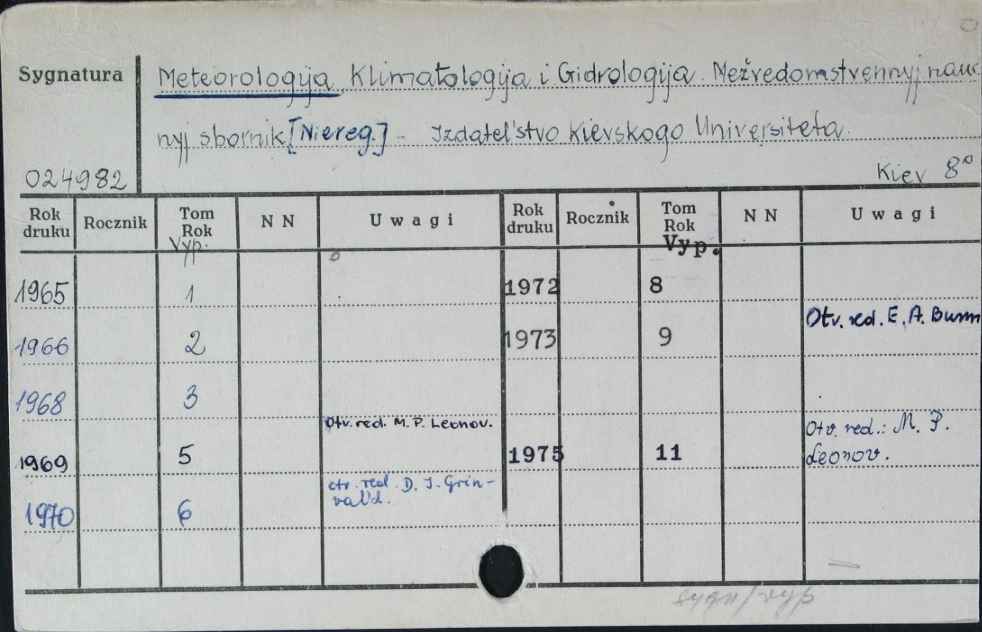 Sygnatura
Meteorologija, Klimatologija i Gidrologija. Mežvedomstvennyj nauč
nyj sbornik [Niereg.] - Izdatel'stvo Kievskogo Universiteta.
024982
Kiev 8°
Rok druku Rocznik Tom Rok NN Uwagi Rok druku Rocznik Tom Rok NN Uwagi
Vyp. Vyp.
1965 1 1972 8
1966 2 1973 9 Otv. red. E. A. Burm
1968 3
1969 5 Otv. red. M. P. Leonov. 1975 11 Otv. red.: M. P.
Leonov.
1970 6 otv. red. D. I. Grin-
val'd.
sygn/vyp